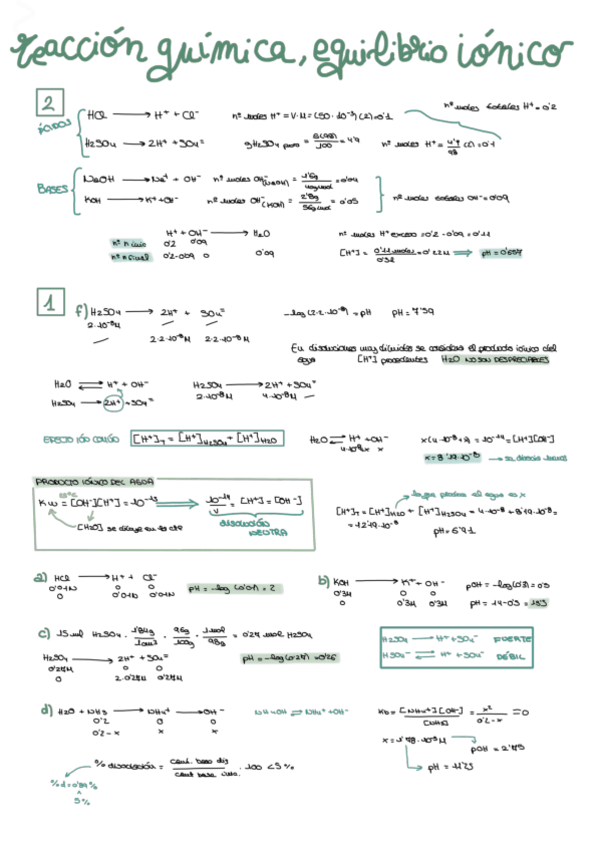 reacción química, equilibrio iónico
2
ÁCIDOS
HCl ⟶ H⁺ + Cl⁻ nº moles H⁺ = V·M = (50·10⁻³)(2) = 0'1 nº moles totales H⁺ = 0'2
H₂SO₄ ⟶ 2H⁺ + SO₄⁼ gH₂SO₄ puro = /100 = 4'9 nº moles H⁺ = 4'9/98 (2) = 0'1
BASES
NaOH ⟶ Na⁺ + OH⁻ nº moles OH⁻(NaOH) = 1'6g/40g/mol = 0'04
KOH ⟶ K⁺ + OH⁻ nº moles OH⁻(KOH) = 2'8g/56g/mol = 0'05 nº moles totales OH⁻ = 0'09
H⁺ + OH⁻ ⟶ H₂O nº moles H⁺ exceso = 0'2 - 0'09 = 0'11
nº n inic 0'2 0'09
nº n final 0'2-0'09 0 0'09 [H⁺] = 0'11 moles/0'5L = 0'22M ⟹ pH = 0'657
1
f) H₂SO₄ ⟶ 2H⁺ + SO₄⁼ -log(2·2·10⁻⁸) = pH pH = 7'39
2·10⁻⁸M
— 2·2·10⁻⁸M 2·2·10⁻⁸M
En disoluciones muy diluidas se considera el producto iónico del
agua [H⁺] procedentes H₂O NO SON DESPRECIABLES
H₂O ⇌ H⁺ + OH⁻ H₂SO₄ ⟶ 2H⁺ + SO₄⁼
H₂SO₄ ⟶ 2H⁺ + SO₄⁼ 2·10⁻⁸M 4·10⁻⁸M —
EFECTO IÓN COMÚN [H⁺]T = [H⁺]H₂SO₄ + [H⁺]H₂O H₂O ⇌ H⁺ + OH⁻ x(4·10⁻⁸+x) = 10⁻¹⁴ = [H⁺][OH⁻]
4·10⁻⁸x x x = 8'19·10⁻⁸
PRODUCTO IÓNICO DEL AGUA
25ºC
Kw = [OH⁻][H⁺] = 10⁻¹⁴ ⟹ 10⁻¹⁴ = [H⁺] = [OH⁻]
[H₂O] se incluye en la cte
DISOLUCIÓN
NEUTRA
lo que produce el agua es x
[H⁺]T = [H⁺]H₂O + [H⁺]H₂SO₄ = 4·10⁻⁸ + 8'19·10⁻⁸ =
= 12'19·10⁻⁸
pH = 6'91
a) HCl ⟶ H⁺ + Cl⁻
0'01N 0 0 pH = -log(0'01) = 2
0 0'01N 0'01N
b) KOH ⟶ K⁺ + OH⁻ pOH = -log(0'3) = 0'5
0'3M 0 0
0 0'3M 0'3M pH = 14-0'5 = 13'5
c) 15 ml H₂SO₄ · 1'84g/1cm³ · 96g/100g · 1mol/98g = 0'27 mol H₂SO₄
H₂SO₄ ⟶ 2H⁺ + SO₄⁼ pH = -log(0'27) = 0'26
0'27M 0 0
0 2·0'27M 0'27M
H₂SO₄ ⟶ H⁺ + SO₄⁻ FUERTE
HSO₄⁻ ⇌ H⁺ + SO₄⁼ DÉBIL
d) H₂O + NH₃ ⟶ NH₄⁺ + OH⁻ NH₄OH ⇌ NH₄⁺ + OH⁻ Kb = [NH₄⁺][OH⁻]/[NH₃] = x²/0'2-x
0'2 0 0
0'2-x x x
x = 1'78·10⁻³M pOH = 2'75
pH = 11'25
% disociación = cant. base dis/cant base inic. · 100 < 5%
% d = 0'89%
5%